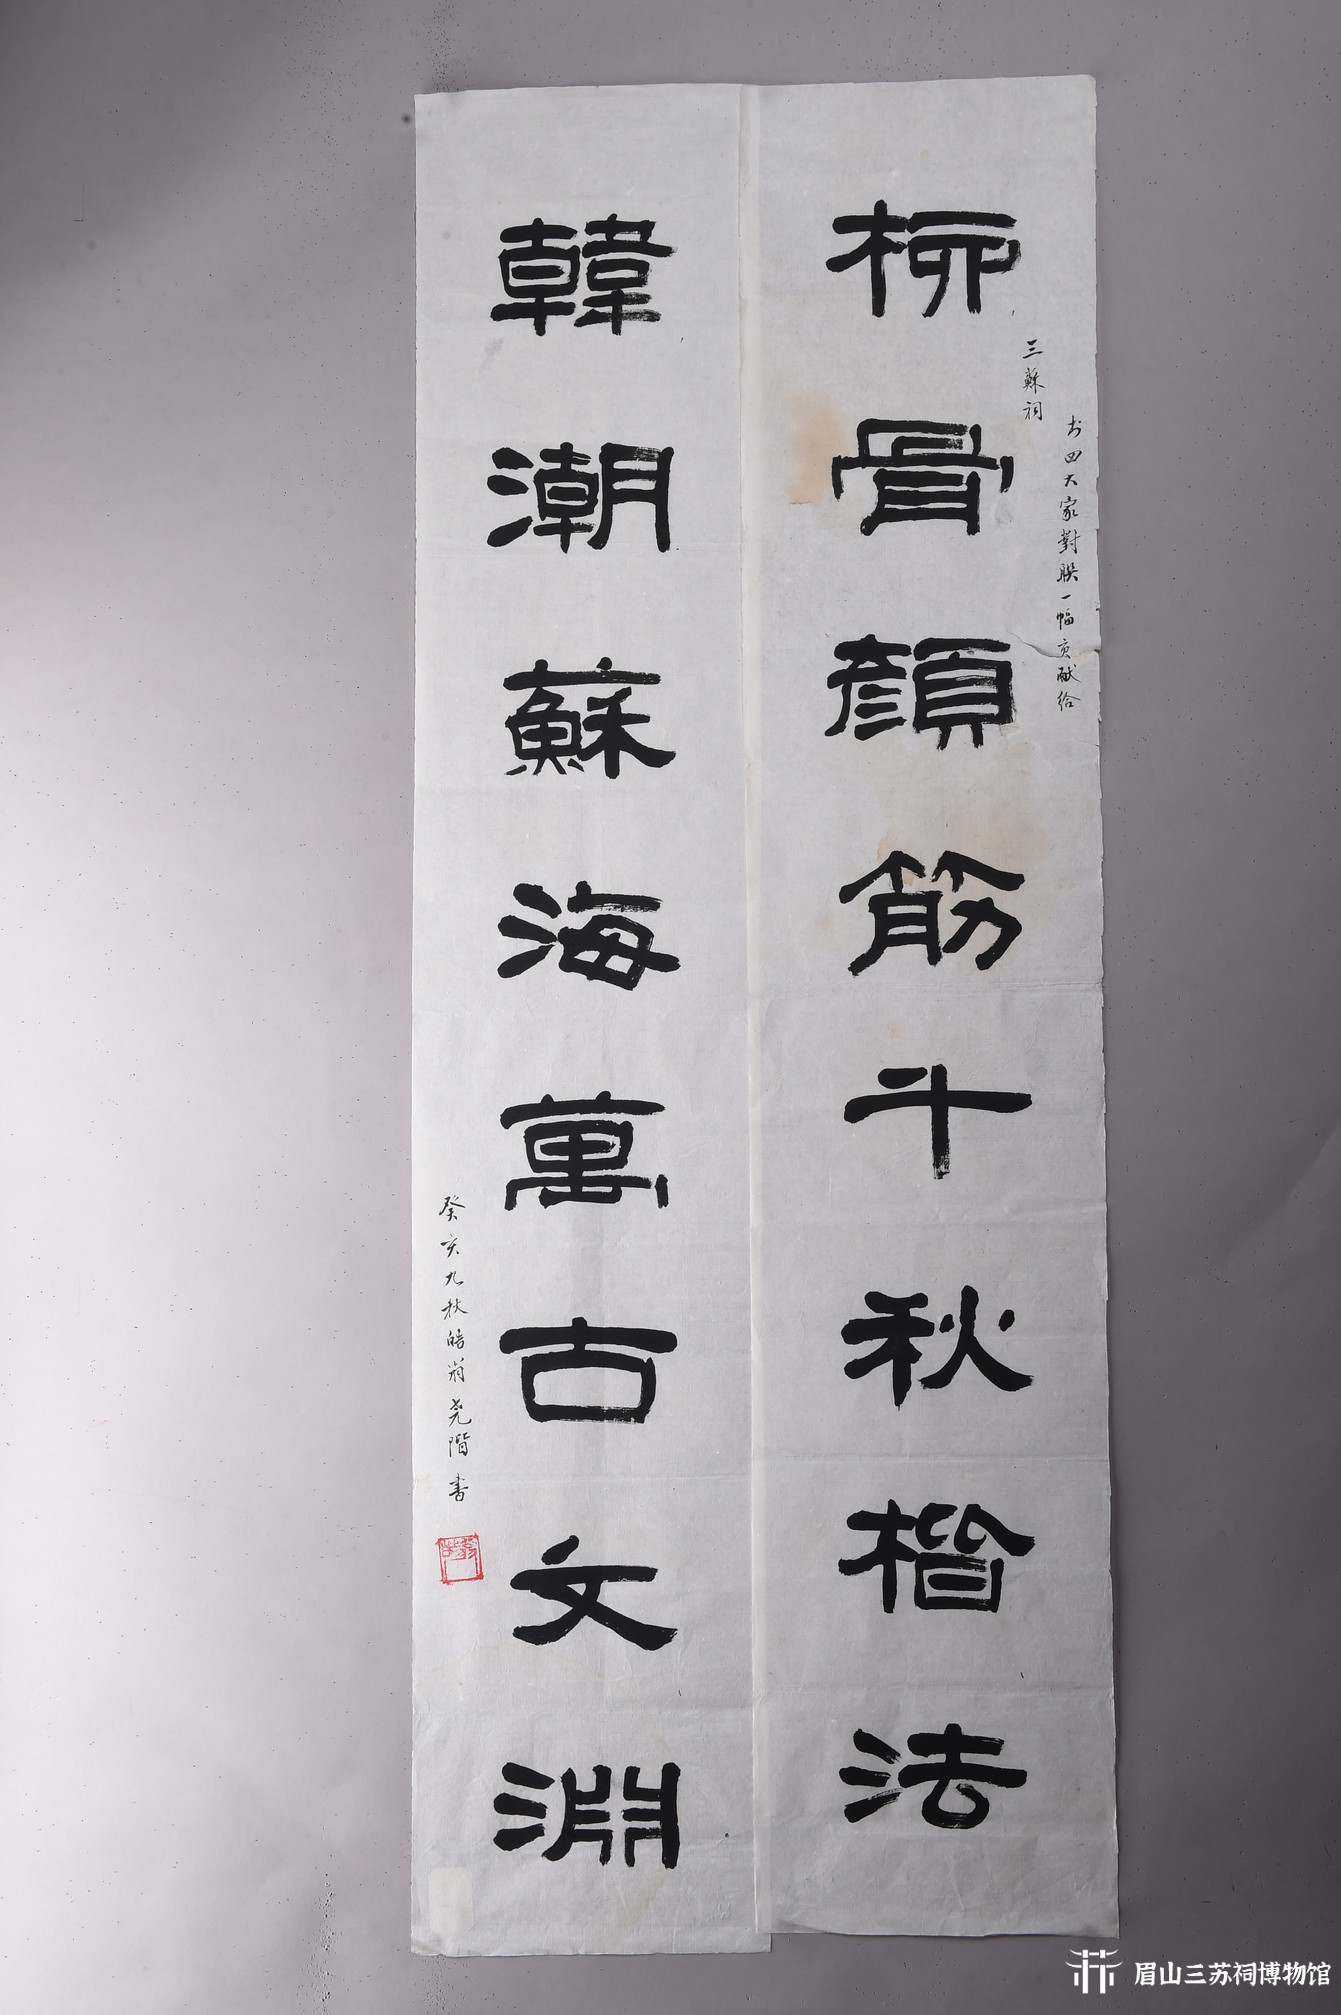 书四大家對联一幅贡献给
三蘇祠
柳骨顔筋千秋楷法
韓潮蘇海萬古文淵
癸亥九秋皓翁尧階书
眉山三苏祠博物馆